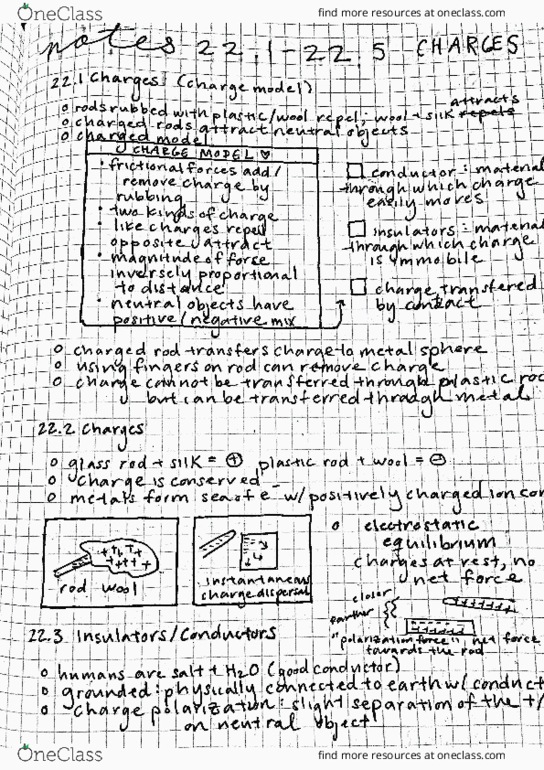 OneClass
find more resources at oneclass.com
notes 22.1-22.5 CHARGES
22.1 Charges (charge model)
o rods rubbed with plastic/wool repel, wool + silk attracts repels
o charged rods attract neutral objects
o charged model
CHARGE MODEL ♥
• frictional forces add/
remove charge by
rubbing
• two kinds of charge
• like charges repel
opposite attract
• magnitude of force
inversely proportional
to distance
• neutral objects have
positive/negative mix
□ conductor: material
through which charge
easily moves
□ insulators: material
through which charge
is immobile
□ charge transferred
by contact
o charged rod transfers charge to metal sphere
o using fingers on rod can remove charge
o charge cannot be transferred through plastic roc
but can be transferred through metal
22.2 Charges
o glass rod + silk = ⊕ plastic rod + wool = ⊖
o charge is conserved
o metals form sea of e⁻ w/ positively charged ion cor
rod wool
instantaneous
charge dispersal
o electrostatic
equilibrium
charges at rest, no
net force
closer
farther
"polarization force", net force
towards the rod
22.3 Insulators/Conductors
o humans are salt + H2O (good conductor)
o grounded: physically connected to earth w/ conduct
o charge polarization: slight separation of the +/
on neutral object
OneClass
find more resources at oneclass.com